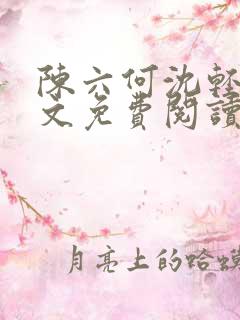 陳六何沈輕
文免費閱讀
月亮上的蛤蟆